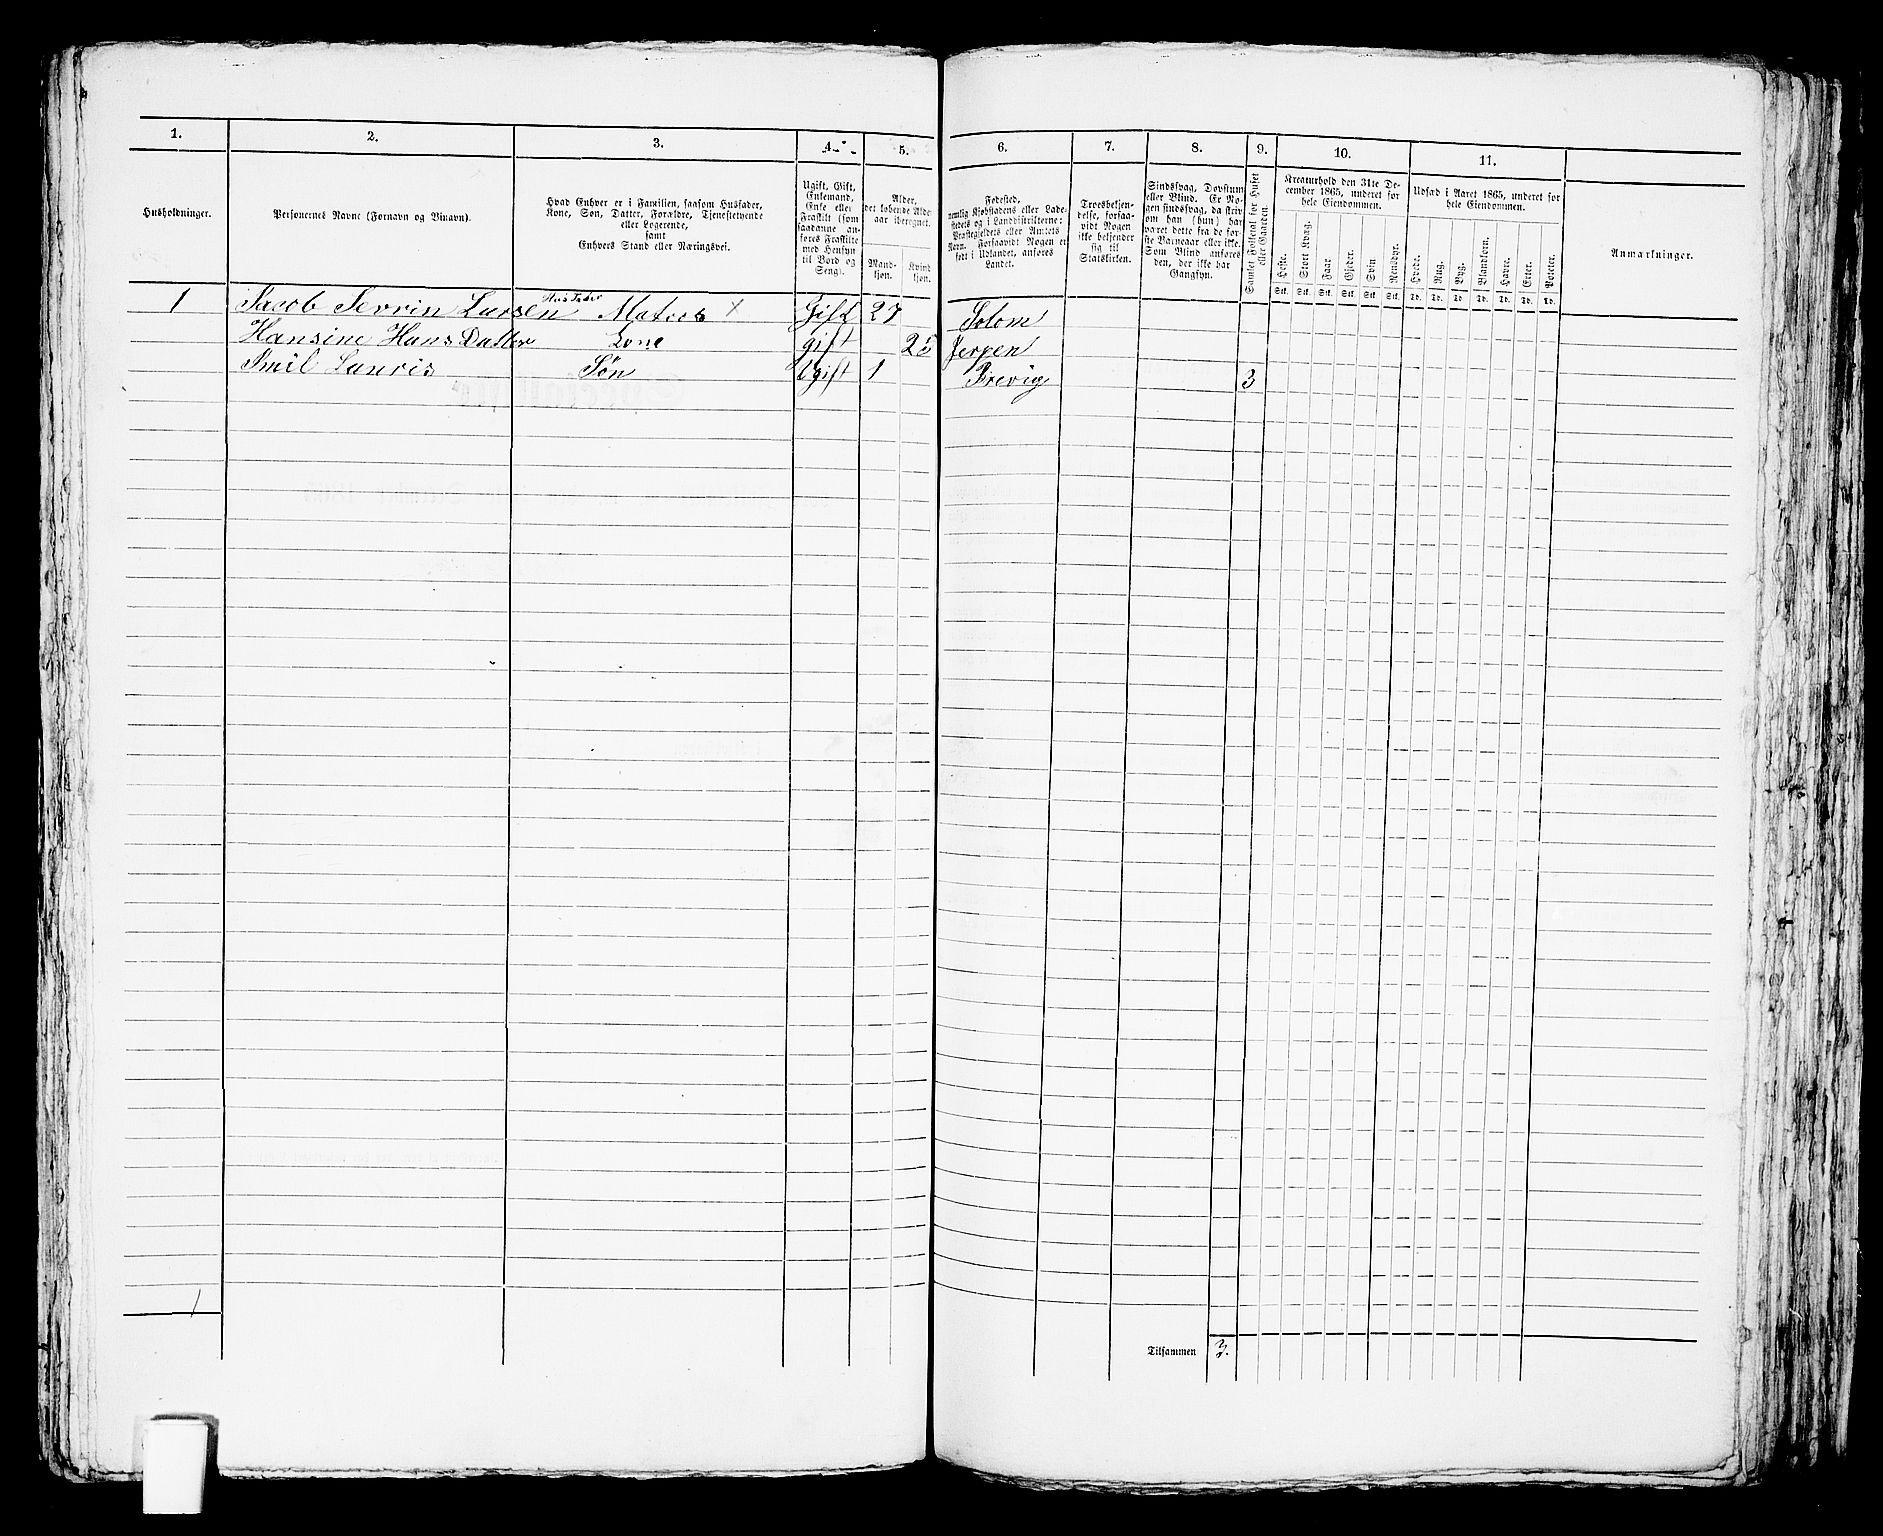 1. 2. 3. 4. 5. 6. 7. 8. 9. 10. 11.
Husholdninger.
Personernes Navne (Fornavn og Binavn).
Hvad Enhver er i Familien, saasom Husfader,
Kone, Søn, Datter, Forældre, Tjenestetyende
eller Logerende,
samt
Enhvers Stand eller Næringsvei.
Ugift, Gift,
Enkemand,
Enke eller
Fraskilt (som
saadanne an-
føres Fraskilte
med Hensyn
til Bord og
Seng).
Alder,
det løbende Alders-
aar iberegnet.
Mand-
kjøn.
Kvind-
kjøn.
Fødested,
nemlig Kjøbstadens eller Lade-
stedets og i Landdistrikterne:
Præstegjeldets eller Amtets
Navn. Forsaavidt Nogen er
født i Udlandet, anføres
Landet.
Troesbekjen-
delse, forsaa-
vidt Nogen
ikke bekjender
sig til
Statskirken.
Sindssvag, Døvstum
eller Blind. Er No-
gen sindssvag, da skriv
om han (hun) har
været dette fra de før-
ste Barneaar eller ikke.
Som Blind anføres
den, der ikke har
Gangsyn.
Samlet Folketal for Huset
eller Gaarden.
Kreaturhold den 31te De-
cember 1865, underet for
hele Eiendommen.
Heste. Stort Kvæg. Faar. Gjeder. Svin Rensdyr.
Stk. Stk. Stk. Stk. Stk. Stk.
Udsæd i Aaret 1865, underet for
hele Eiendommen.
Hvede. Rug. Byg. Blandkorn. Havre. Erter. Poteter.
Td. Td. Td. Td. Td. Td. Td.
Anmærkninger.
1 Jacob Sevrin Larsen Husfader Matros x Gift 27 Solom
Hansine Hans Datter Kone gift 25 Jerpen
Emil Lauris Søn Ugift 1 Brevig 3
1
Tilsammen 3.